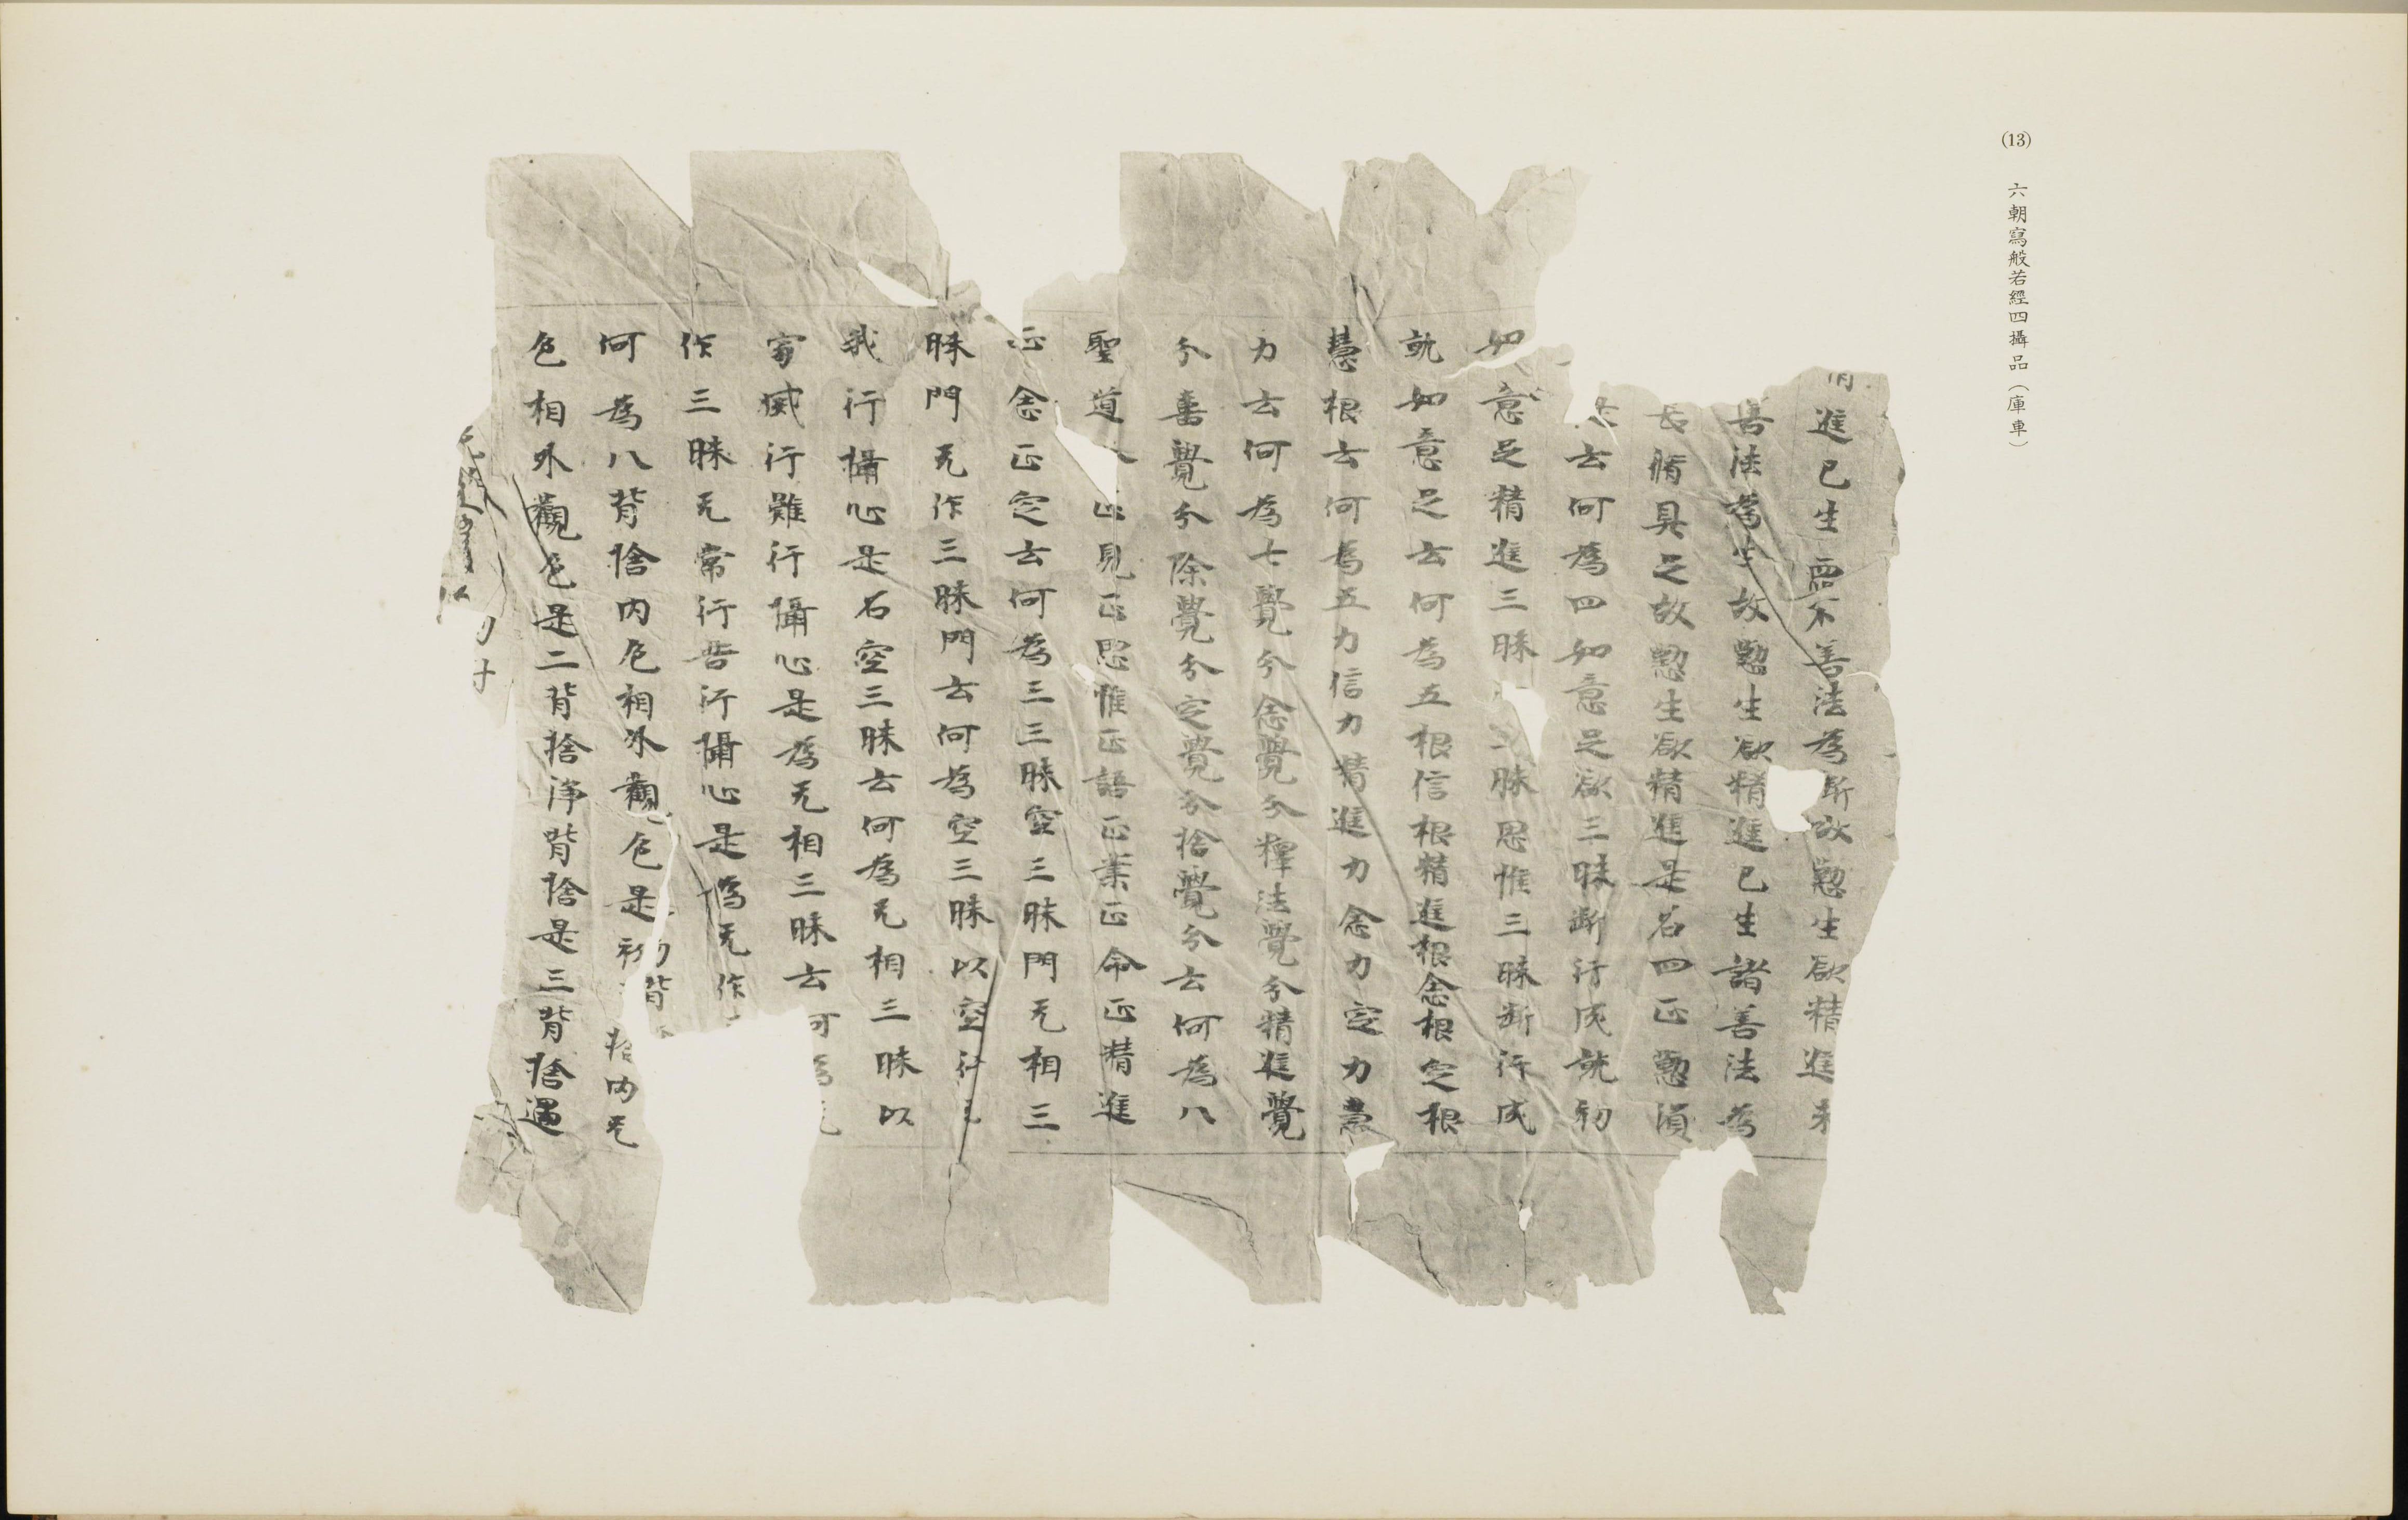 (13) 六朝寫般若經四攝品（庫車）
進已生惡不善法為斷故懃生欲精進
善法為生故懃生欲精進已生諸善法為
脩具足故懃生欲精進是名四正懃
云何為四如意足欲三昧斷行成就初
如意足精進三昧三昧思惟三昧斷行成
就如意足云何為五根信根精進根念根定根
慧根云何為五力信力精進力念力定力慧
力云何為七覺分念覺分釋法覺分精進覺
分喜覺分除覺分定覺分捨覺分云何為八
聖道正見正思惟正語正業正命正精進
正念正定云何為三三昧空三昧門无相三
昧門无作三昧門云何為空三昧以空行
我行攝心是名空三昧云何為无相三昧以
寂滅行離行攝心是為无相三昧云何為
作三昧无常行苦行攝心是為无作
何為八背捨內色相外觀色是初背捨內无
色相外觀色是二背捨淨背捨是三背捨過